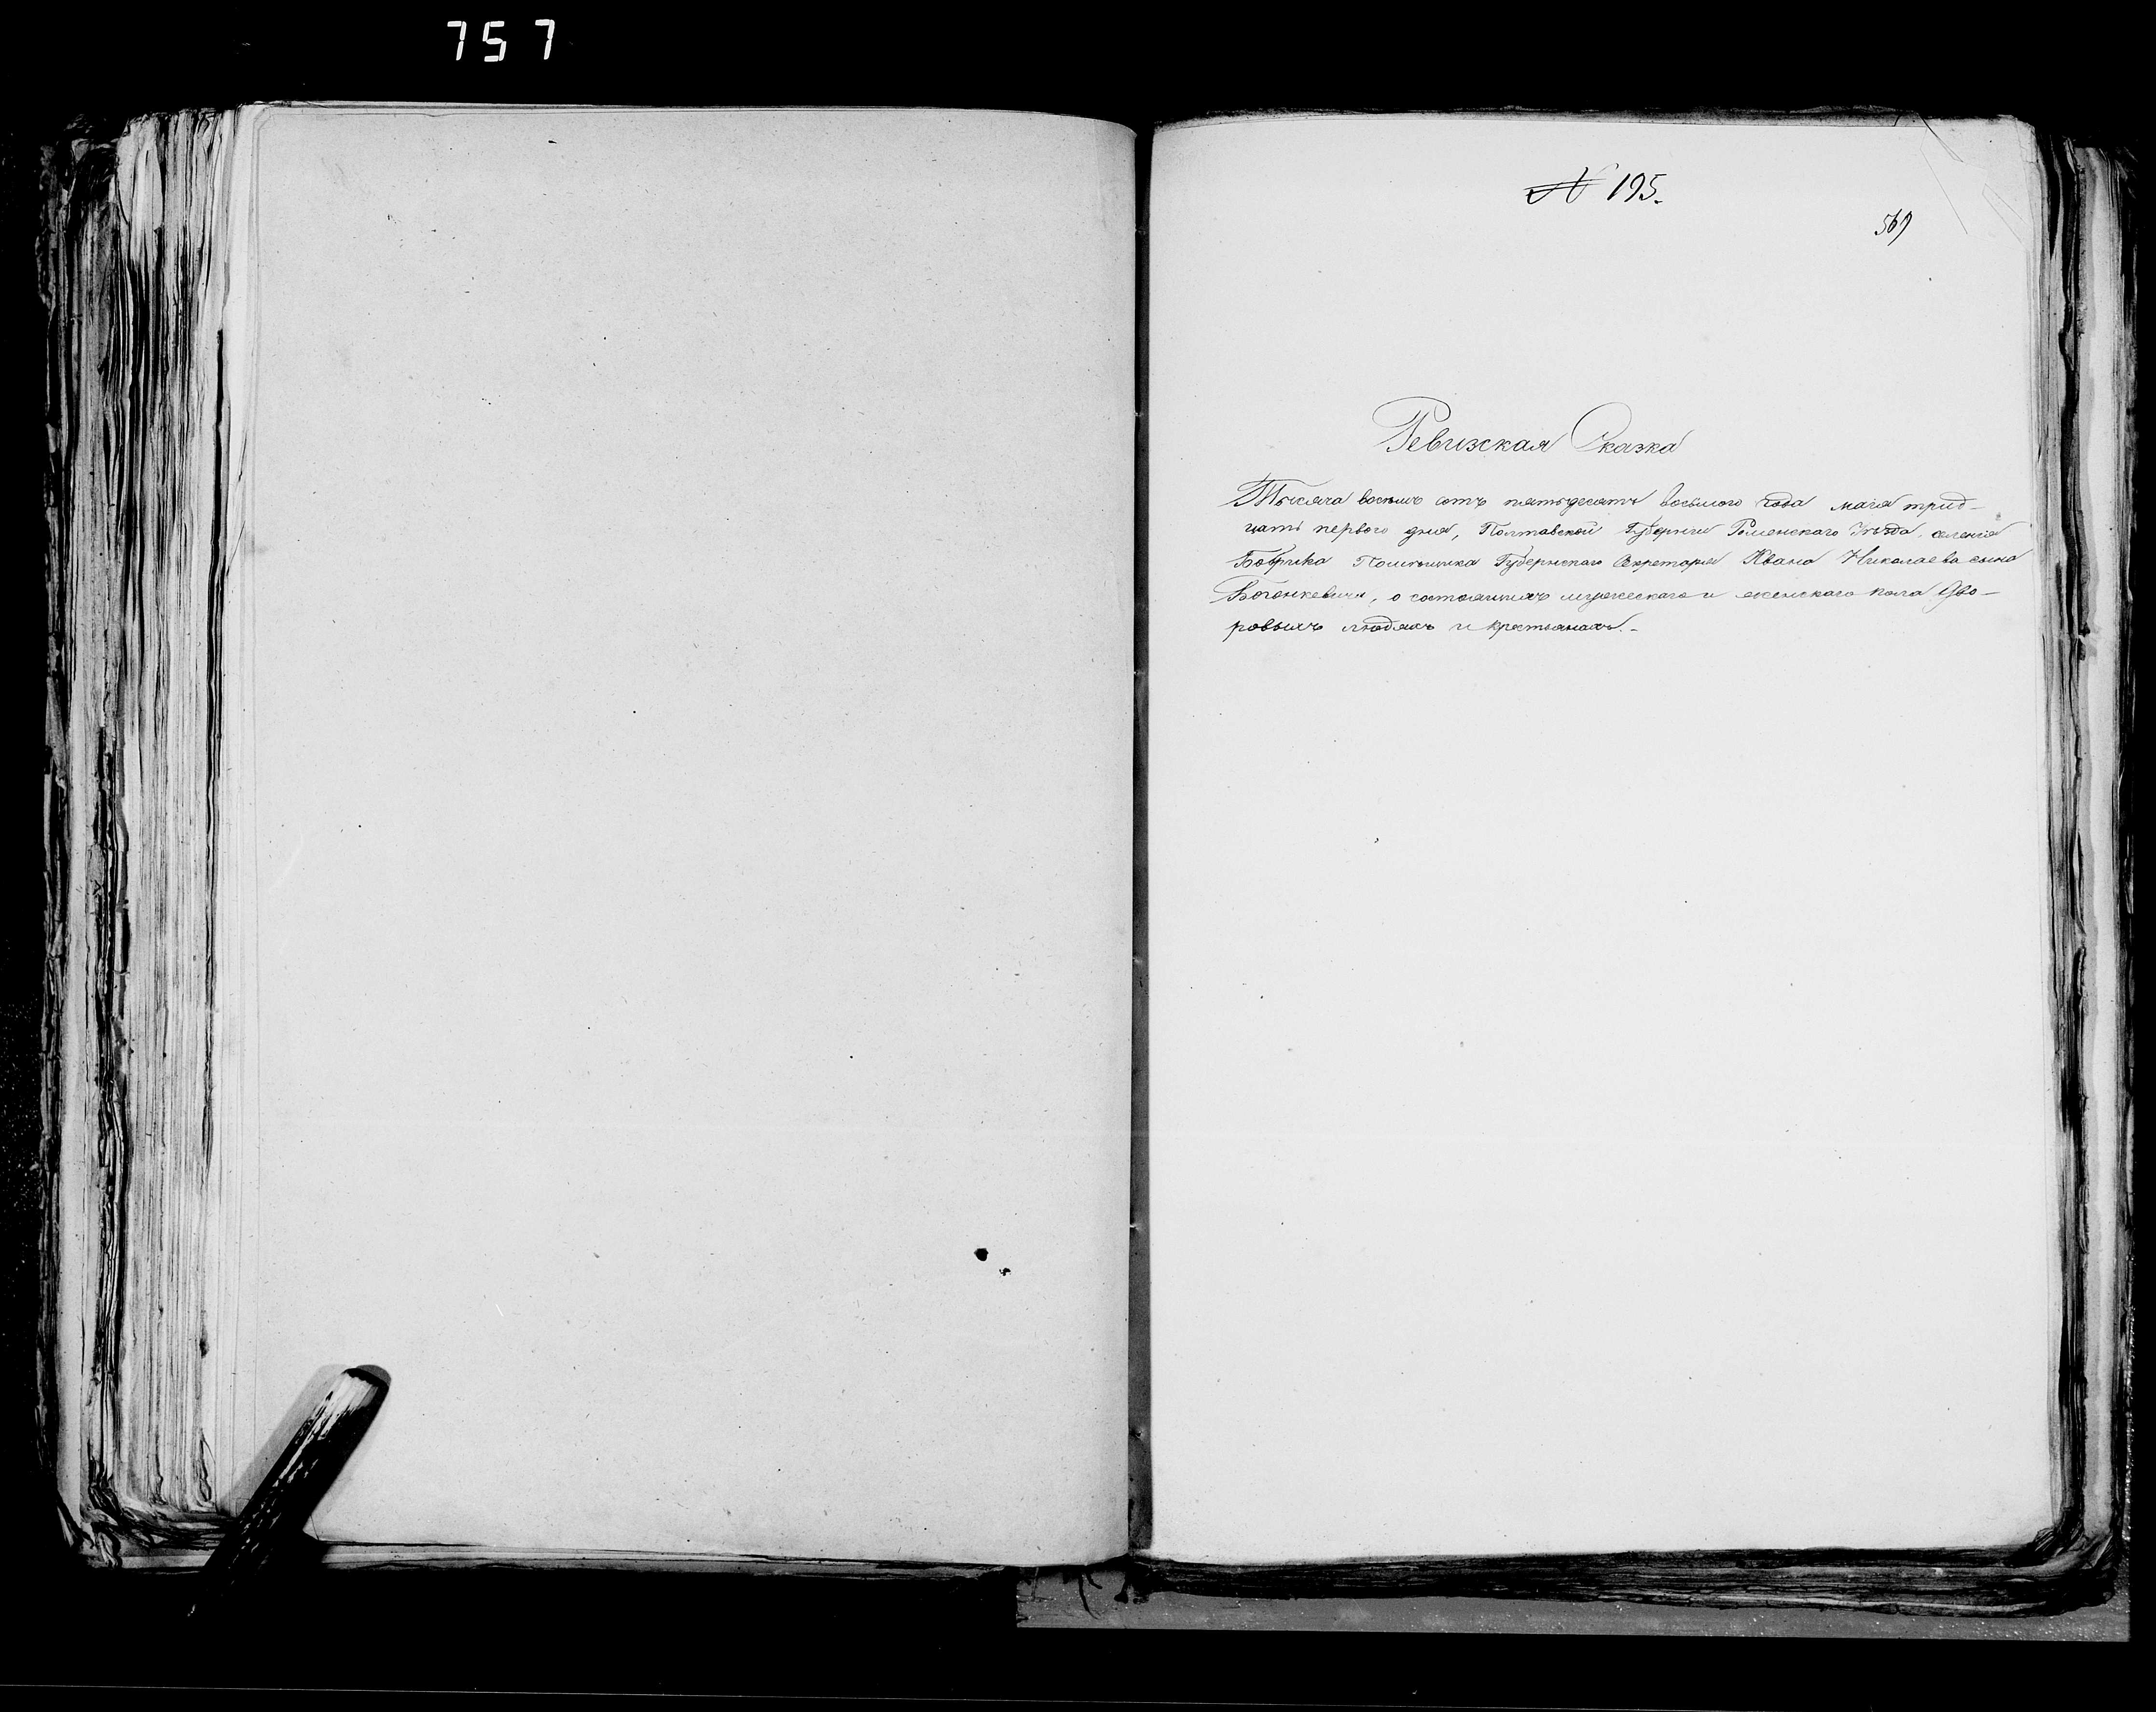 757
№ 195.
569
Ревизская Сказка
Тысяча восемь сотъ пятьдесятъ восьмого года маія трид-
цать первого дня, Полтавской Губерніи Роменскаго Уѣзда, селенія
Бобрика Помѣщика Губернскаго Секретаря Ивана Николаева сына
о состоящихъ мужескаго и женскаго пола дво-
ровыхъ людяхъ и крестьянахъ.-